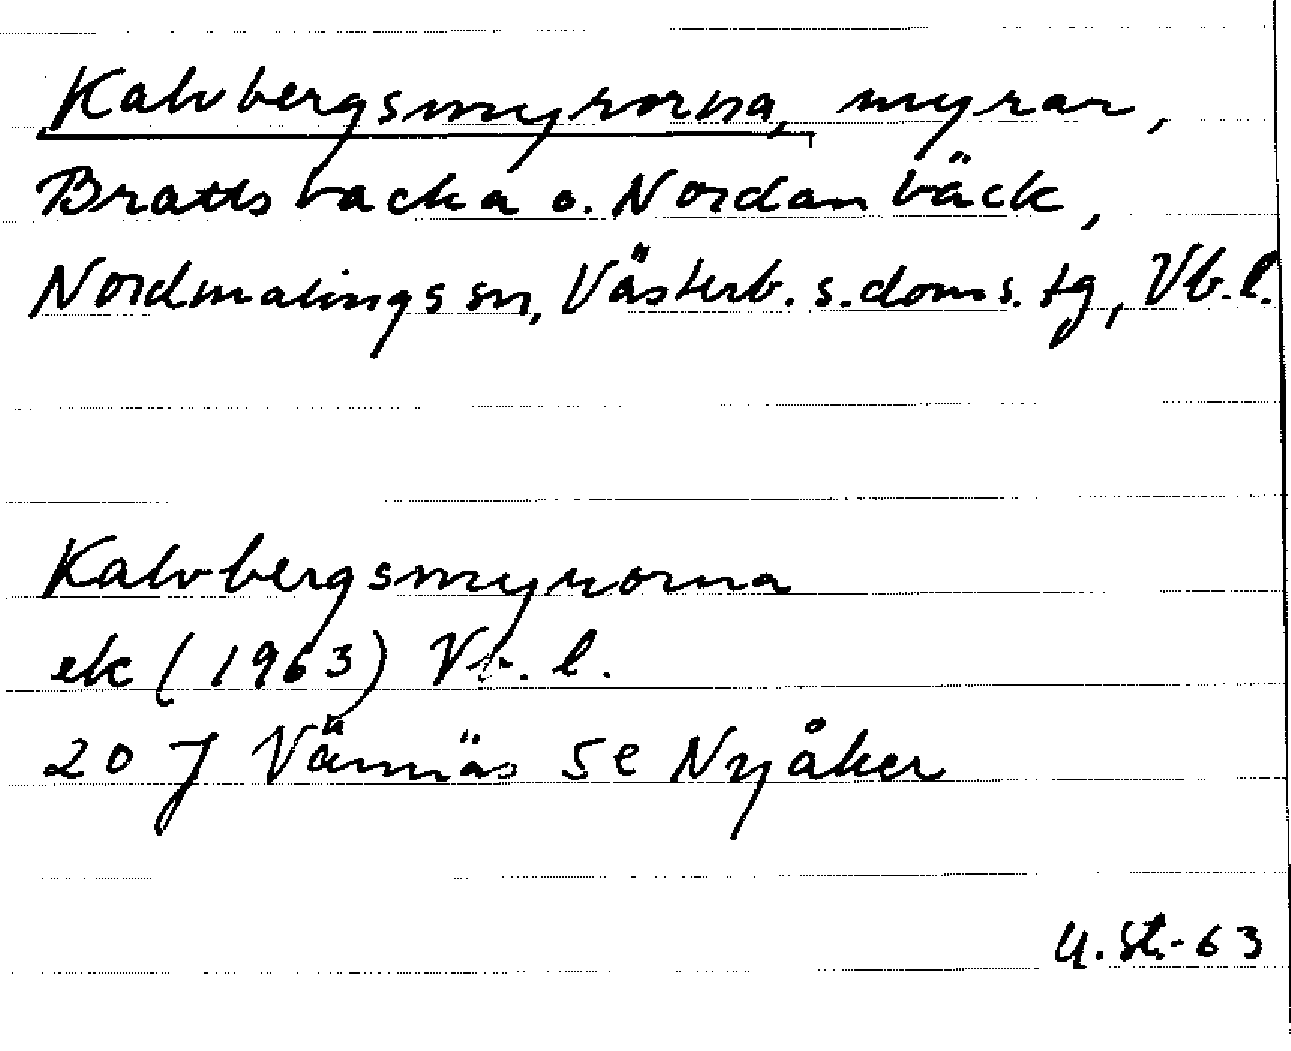 Kalvbergsmyrorna, myrar,
Brattsbacka o. Nordanbäck,
Nordmalings sn, Västerb. s. doms. tg, Vb. l.
Kalvbergsmyrorna
ek (1963) Vb. l.
20 J Vännäs 5e Nyåker
U. St. -63